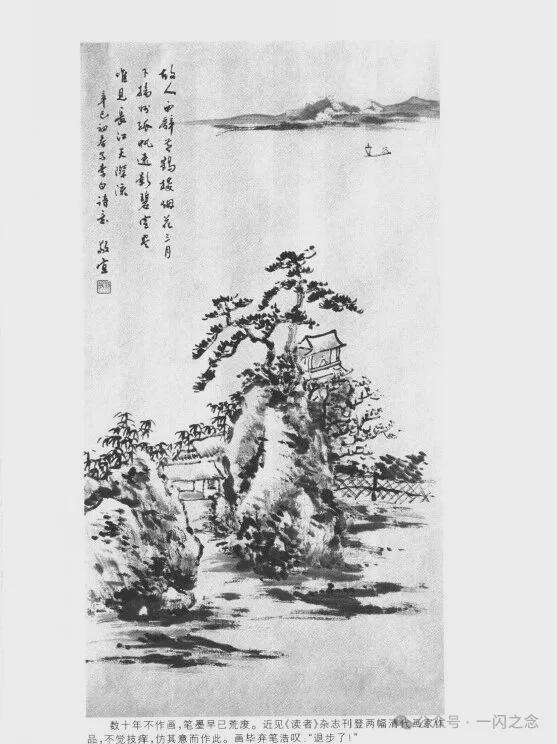 故人西辭黄鶴樓烟花三月
下揚州孤帆遠影碧空盡
唯見長江天際流
辛巳初春写李白詩意 敬宜
数十年不作画，笔墨早已荒废。近见《读者》杂志刊登两幅清代画家作
品，不觉技痒，仿其意而作此。画毕弃笔浩叹：“退步了！”
公众号 · 一闪之念